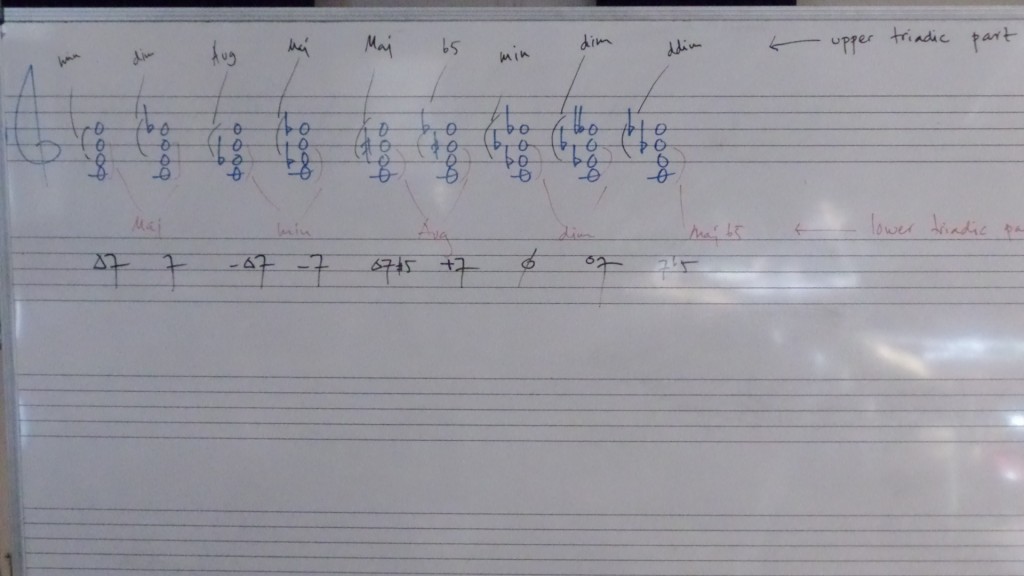 min dim Aug Maj Maj b5 min dim ddim ← upper triadic part
Maj min Aug dim Maj b5 ← lower triadic pa
Δ7 7 -Δ7 -7 Δ7#5 +7 ø o7 7b5